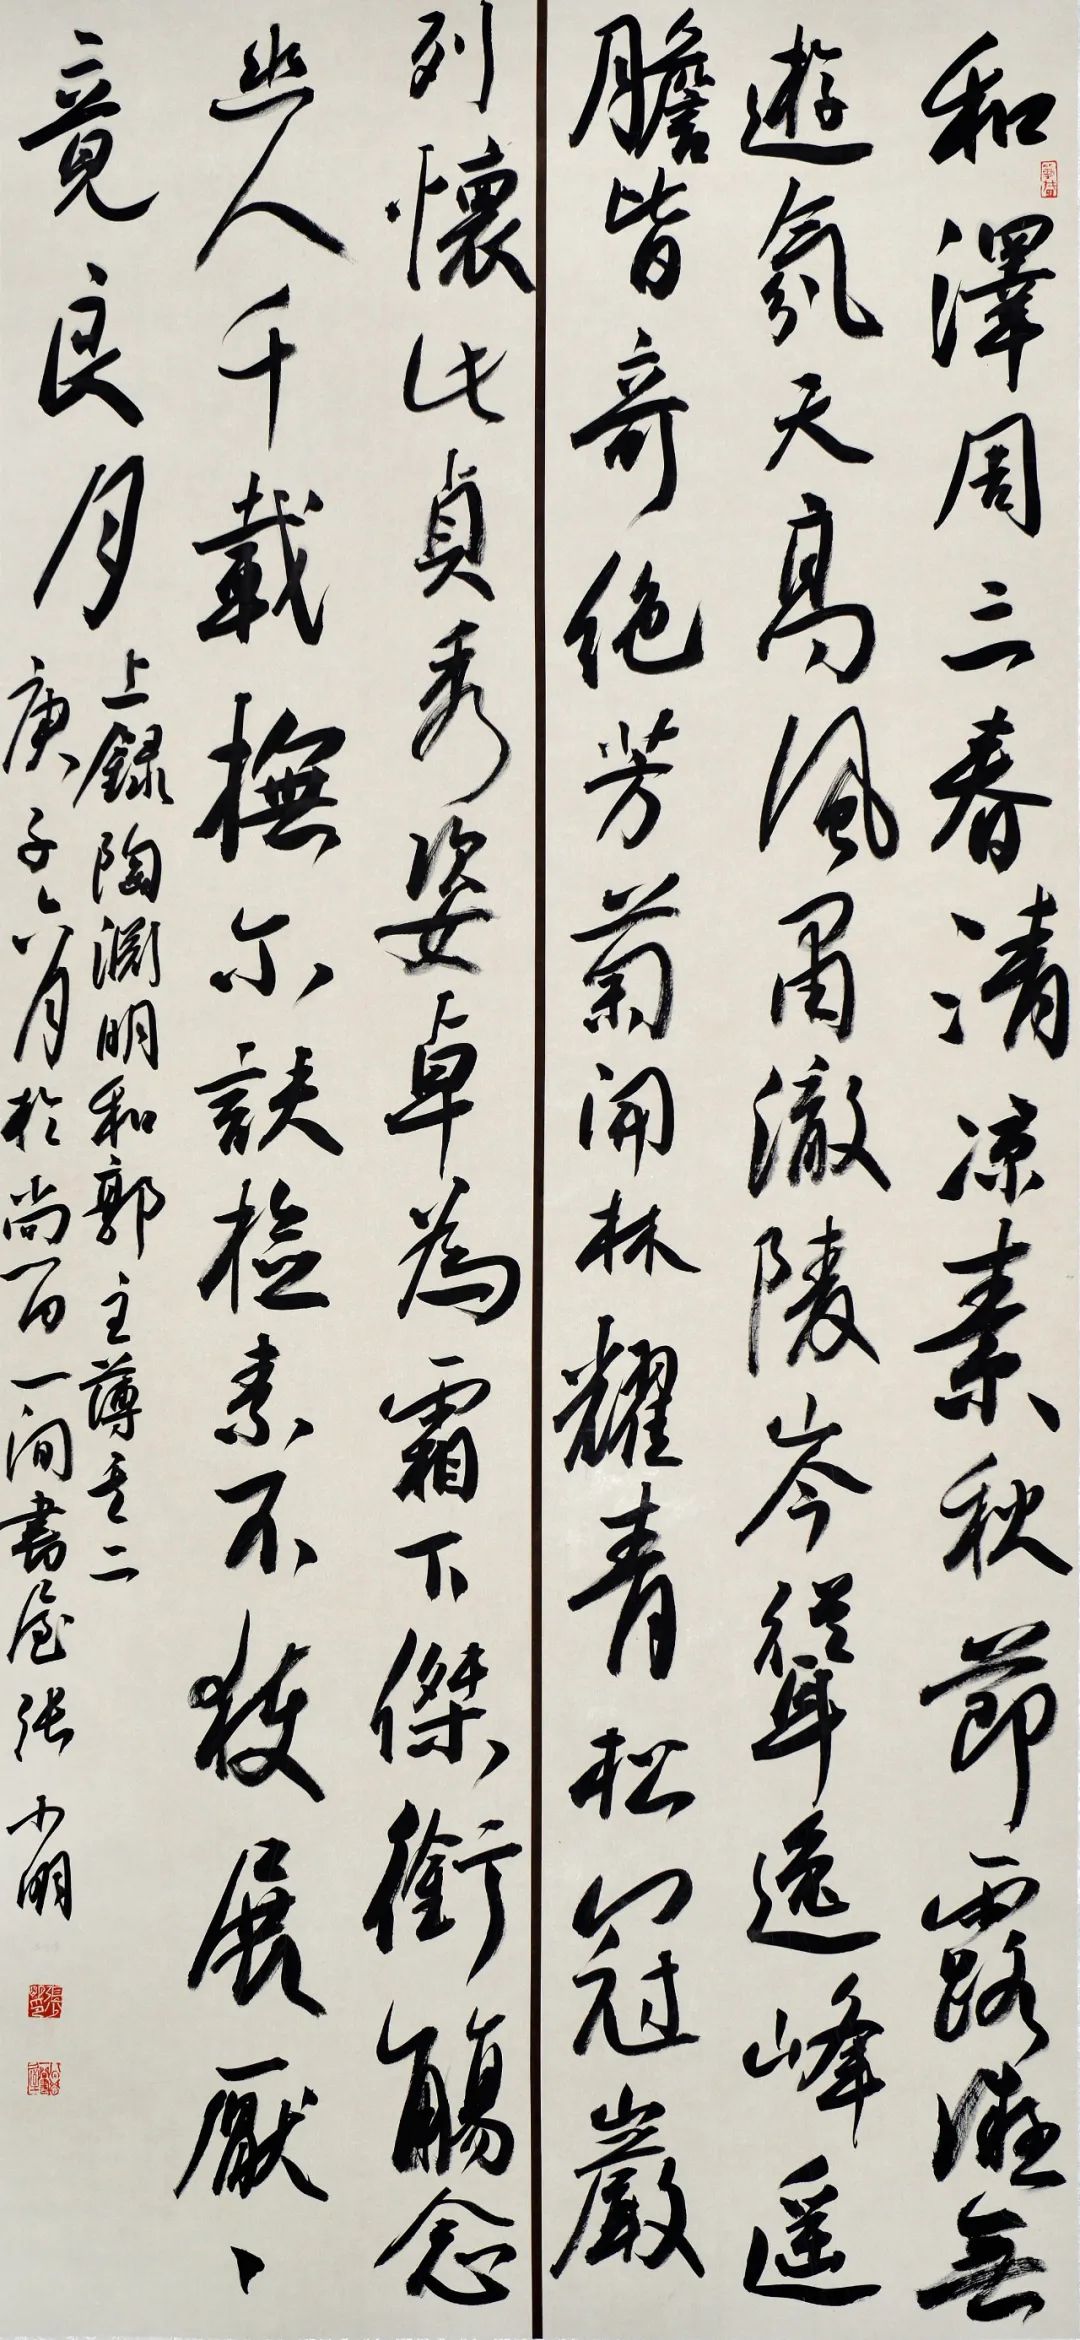 和澤周三春清涼素秋節露凝無
遊氛天高風景澈陵岑聳逸峰遥
瞻皆奇絶芳菊開林耀青松冠巖
列懷此貞秀姿卓為霜下傑銜觴念
幽人千載撫尔訣檢素不獲展厭、
竟良月
上録陶淵明和郭主薄其二
庚子六月於尚百一間書屋張小明